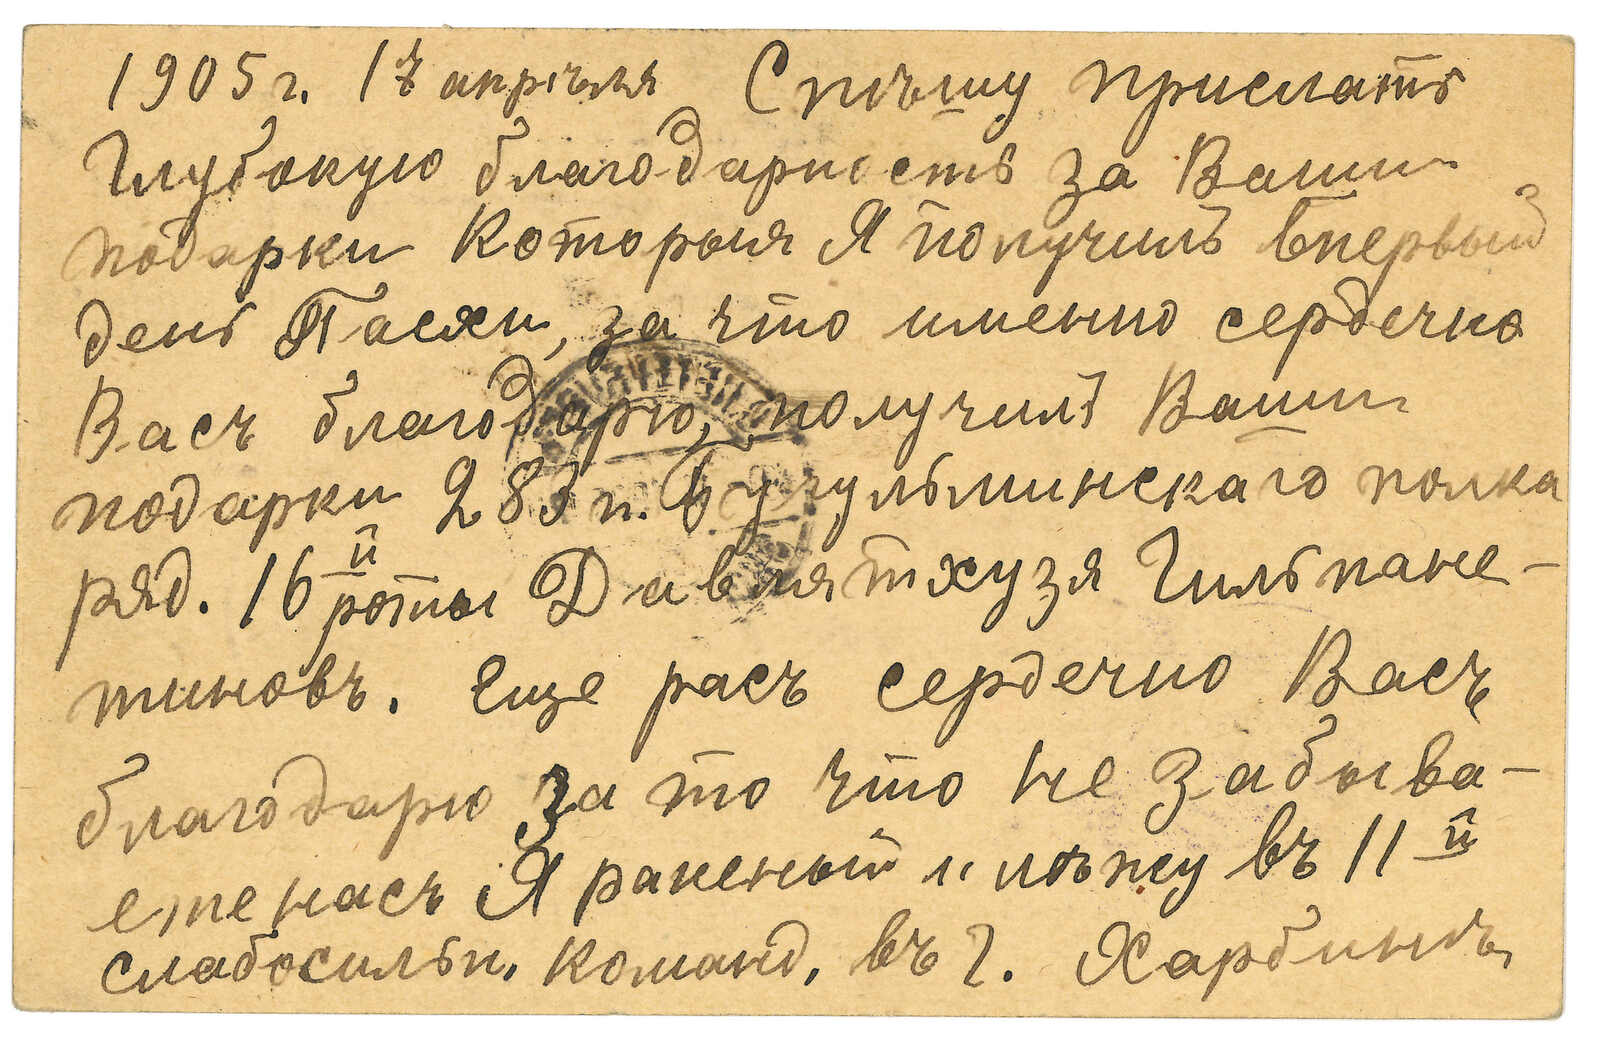 1905 г. 17 апрѣля Спѣшу прислать
Глубокую благодарность за Ваши
подарки Которыя Я получилъ впервый
день Пасхи, за что именно сердечно
Васъ благодарю, получилъ Ваши
подарки 283 п. Бугульминскаго полка
ряд. 16й роты Давлятхузя Гильмане-
тиновъ. Еще расъ сердечно Васъ
благодарю за то что не забыва-
ете насъ Я раненый и лѣжу въ 11й
слабосильн. команд. въ г. Харбинъ